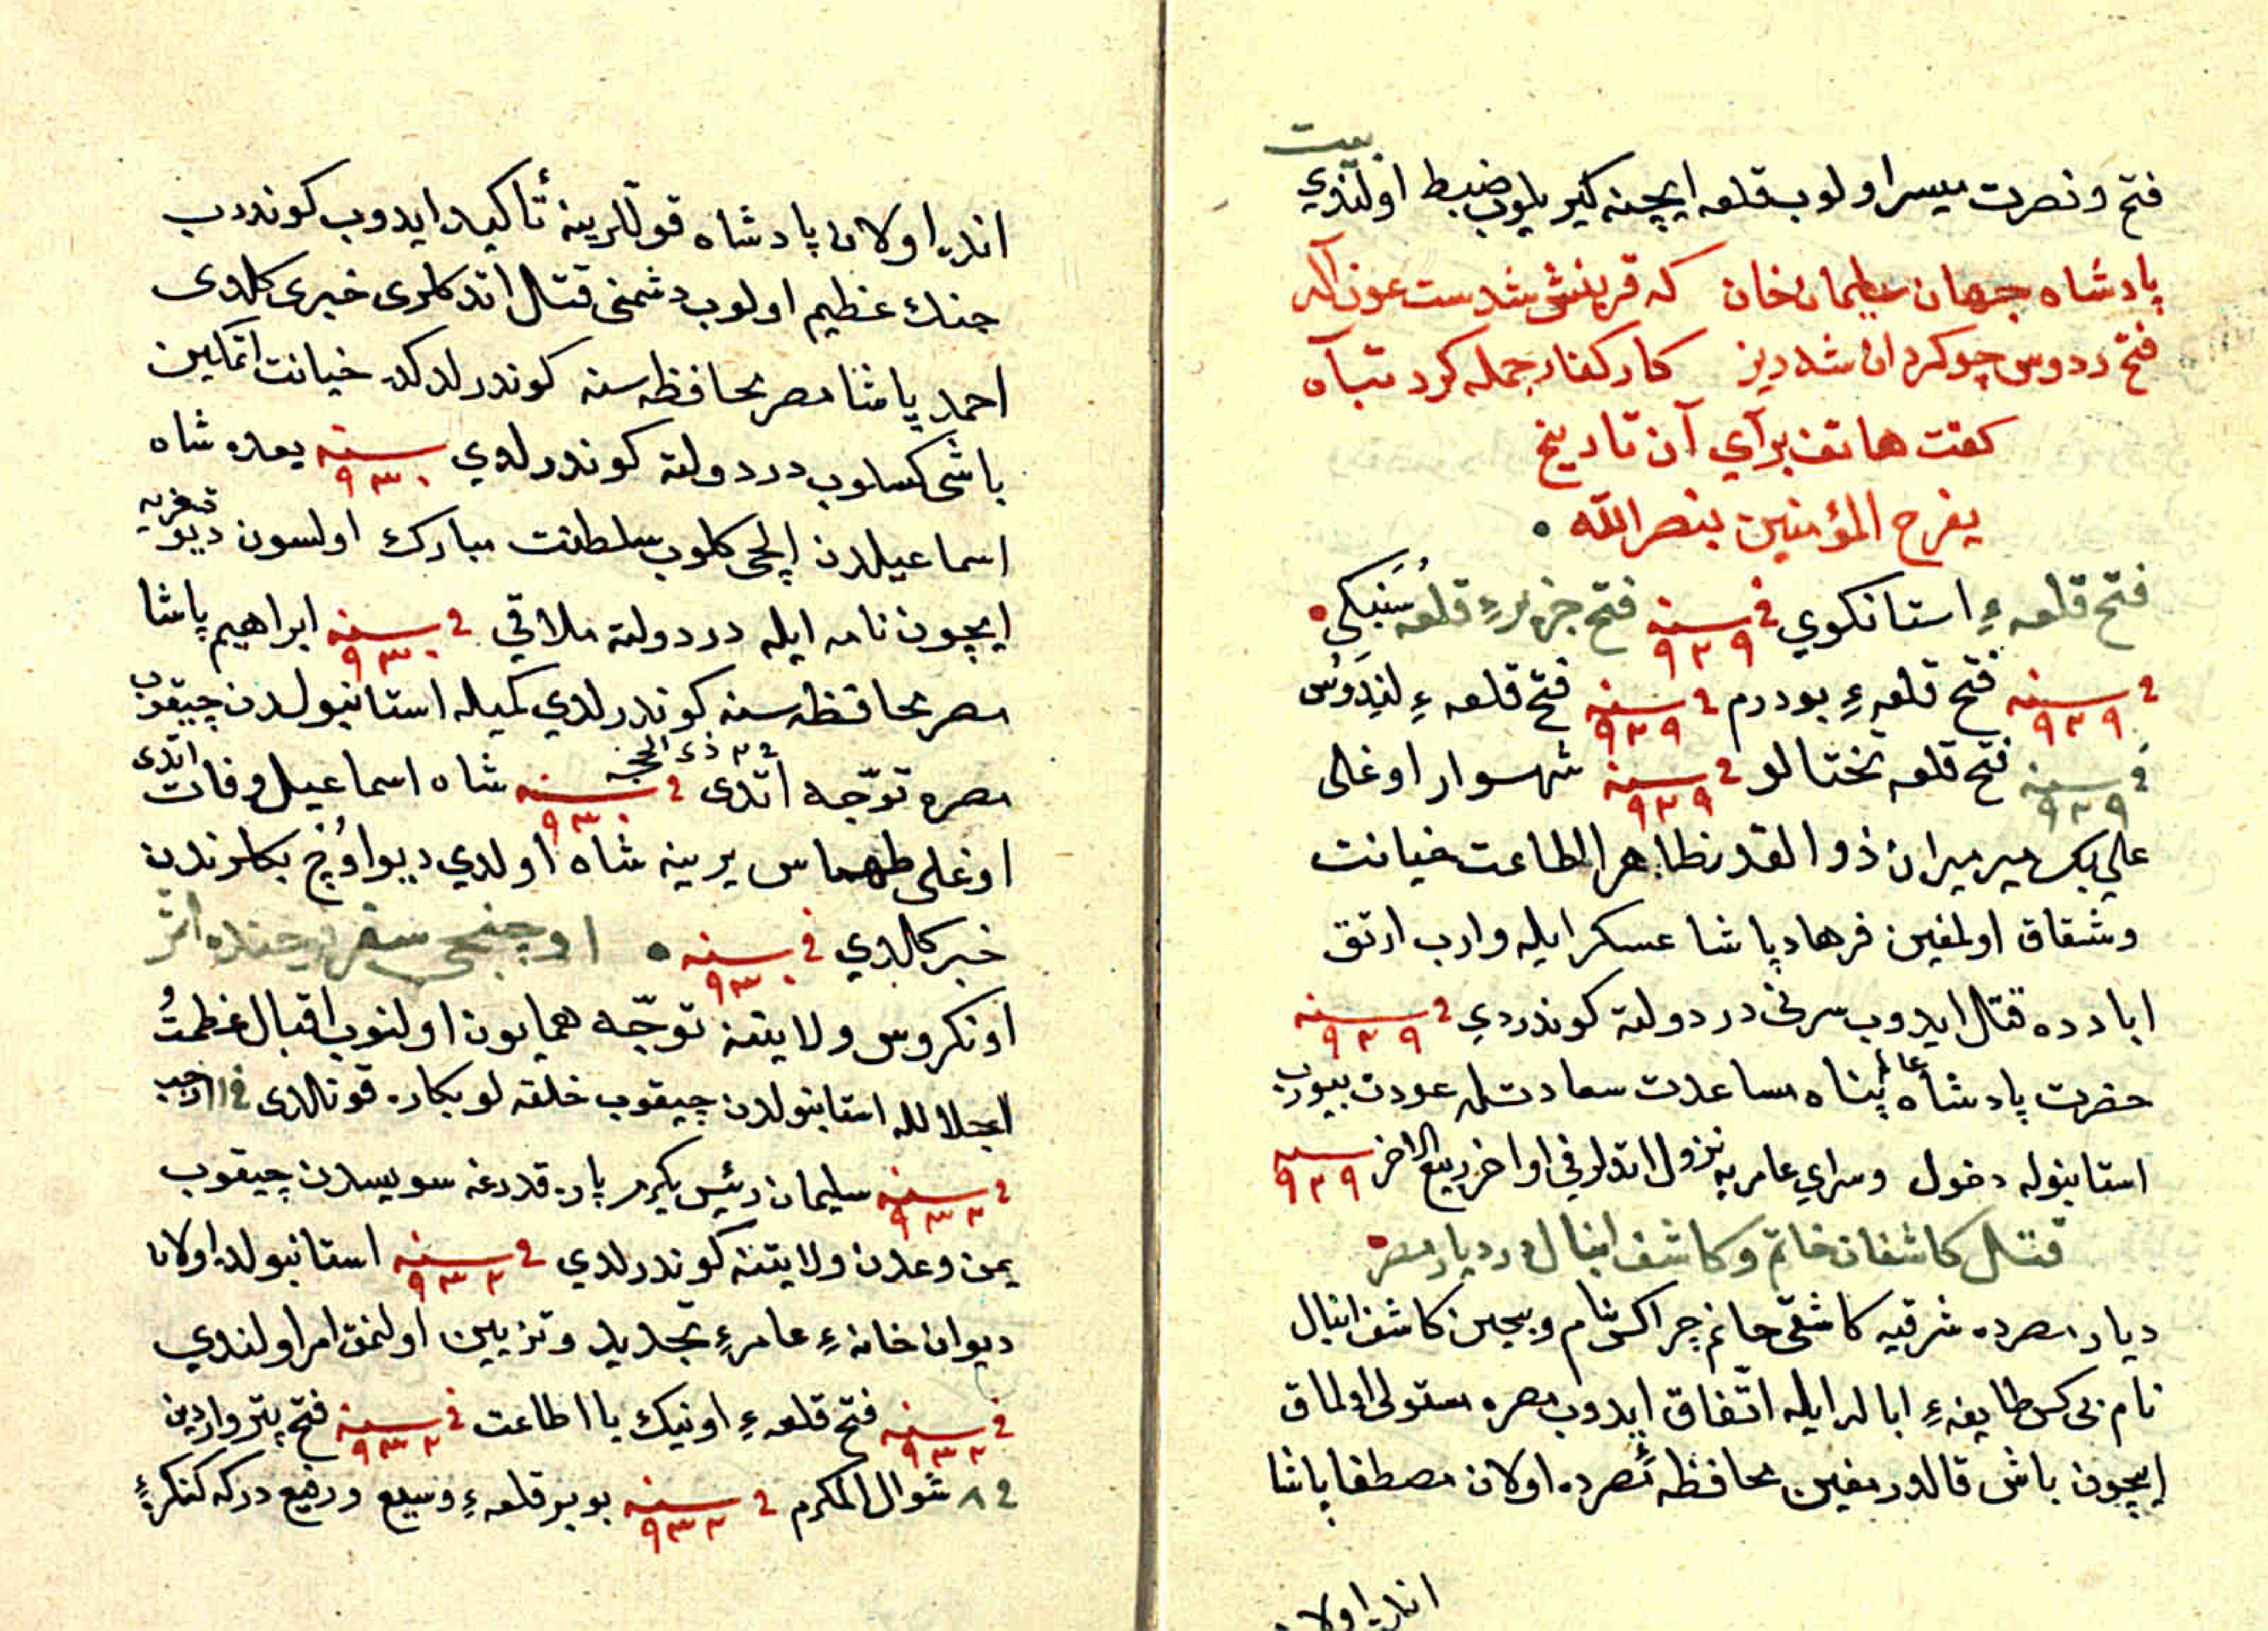 بيت
فتح و نصرت ميسر اولوب قلعه ايچنه كيريلوب ضبط اولندي
پادشاه جهان سليمان خان كه قرينش شدست عون اله
فتح ردوس چو كرد ان شه دين كار كفار جمله كرد تباه
كفت هاتف براي آن تاريخ
يفرح المؤمنين بنصر الله
فتح قلعهء استانكوي في سنه ٩٢٩ فتح جزيرهء قلعه سنبكى
في سنه ٩٢٩ فتح قلعهء بودرم في سنه ٩٢٩ فتح قلعهء ليندوس
في سنه ٩٢٩ فتح قلعه تختالو في سنه ٩٢٩ شهسوار اوغلى
علي بك ميرميران ذو القدر ظاهر الطاعت خيانت
وشقاق اولمغين فرهاد پاشا عسكر ايله وارب ارتق
ابادده قتال ايدوب سرنى در دولته كوندردي في سنه ٩٢٩
حضرت پادشاه عالم پناه مساعدت سعادتله عودت بيورب
استانبوله دخول وسراي عامريه نزول اتدلر في اواخر ربيع الاخر سنه ٩٢٩
قتال كاشفان خانم وكاشف اينال در ديار مصر
ديار مصرده شرقيه كاشفى حانم چراكس نام وبيجين كاشف اينال
نام بي كس طايفهء ابالر ايله اتفاق ايدوب مصره مستولى اولماق
ايچون باش قالدرمغين محافظه مصرده اولان مصطفا پاشا
انده اولان
انده اولان پادشاه قوللرينه تأكيد ايدوب كوندرب
جنك عظيم اولوب دشمنى قتال اتدكلرى خبرى كلدى
احمد پاشا مصر محافظه سنه كوندرلدكده خيانت اتمكين
باشى كسلوب در دولته كوندرلدي سنه ٩٣٠ بعده شاه
اسماعيلدن ايلچى كلوب سلطنت مبارك اولسون ديو تعزيه
ايچون نامه ايله در دولته ملاقي في سنه ٩٣٠ ابراهيم پاشا
مصر محافظه سنه كوندرلدي كميله استانبولدن چيقوب
مصره توجه اتدى في ٢ ذي الحجه سنه ٩٣٠ شاه اسماعيل وفات اتدى
اوغلى طهماس يرينه شاه اولدي ديو اوج بكلرندن
خبر كالدي في سنه ٩٣٠ اوچنجى سفر
اونكروس ولايتنه توجه همايون اولنوب اقبال عظمت
اجلالله استانبولدن چيقوب خلقه لو بكاره قونالدى في ١١ رجب
في سنه ٩٣٢ سليمان رئيس يكرمر پاره قدرغه سويسدن چيقوب
يمن وعدن ولايتنه كوندرلدي في سنه ٩٣٢ استانبولده اولان
ديوان خانهء عامرهء تجديد وتزيين اولنمق امر اولندي
في سنه ٩٣٢ فتح قلعهء اونيك با اطاعت في سنه ٩٣٢ فتح پتروارادين
في ٨ شوال المكرم في سنه ٩٣٢ بو بر قلعهء وسيع ورفيع دركه كنكرهء